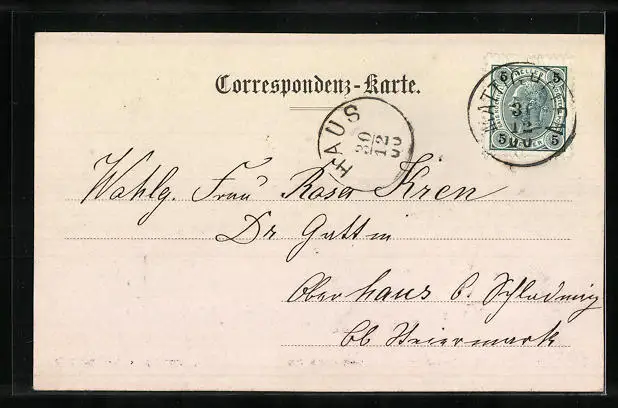 Correspondenz-Karte.
HAUS
30
12
00
MATT
31
12
00
5 5
5 5
Wohlg. Frau Rosa Kren
Dr Gattin
Oberhaus b. Schladmig
Ob Steiermark